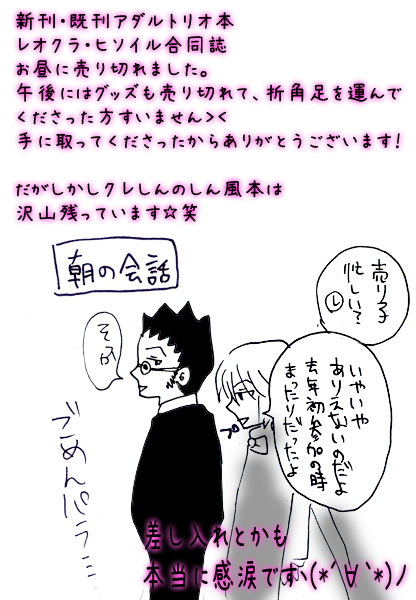 新刊・既刊アダルトリオ本
レオクラ・ヒソイル合同誌
お昼に売り切れました。
午後にはグッズも売り切れて、折角足を運んで
くださった方すいません><
手に取ってくださったからありがとうございます!
だがしかしクレしんのしん風本は
沢山残っています☆笑
朝の会話
売り子
忙しい?
レ
いやいや
ありえないのだよ
去年初参加の時
まったりだったよ
ク
そか
ごめんパラ…
差し入れとかも
本当に感涙ですヽ(*´∀`*)ノ